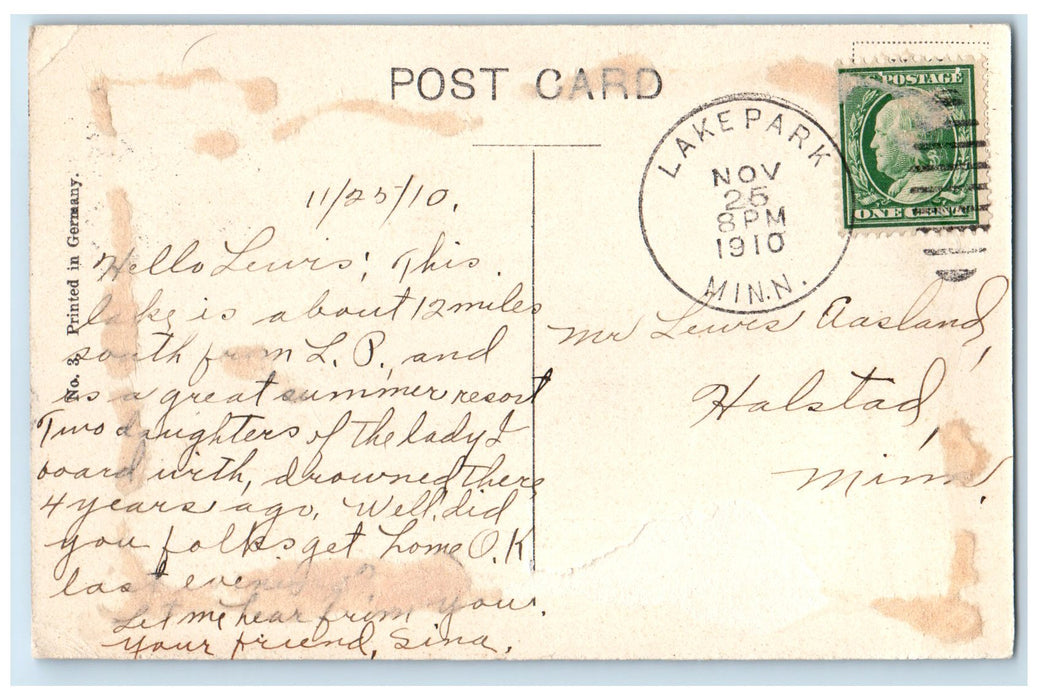 POST CARD
No. 3. Printed in Germany.
11/25/10.
Hello Lewis; This
lake is about 12 miles
south from L. P., and
is a great summer resort
Two daughters of the lady I
board with, drowned there
4 years ago. Well, did
you folks get home O.K
last evening
Let me hear from you.
Your friend, Sina.
LAKE PARK
NOV
25
8 PM
1910
MINN.
U.S. POSTAGE
ONE CENT
Mr Lewis Aasland,
Halstad,
Minn.